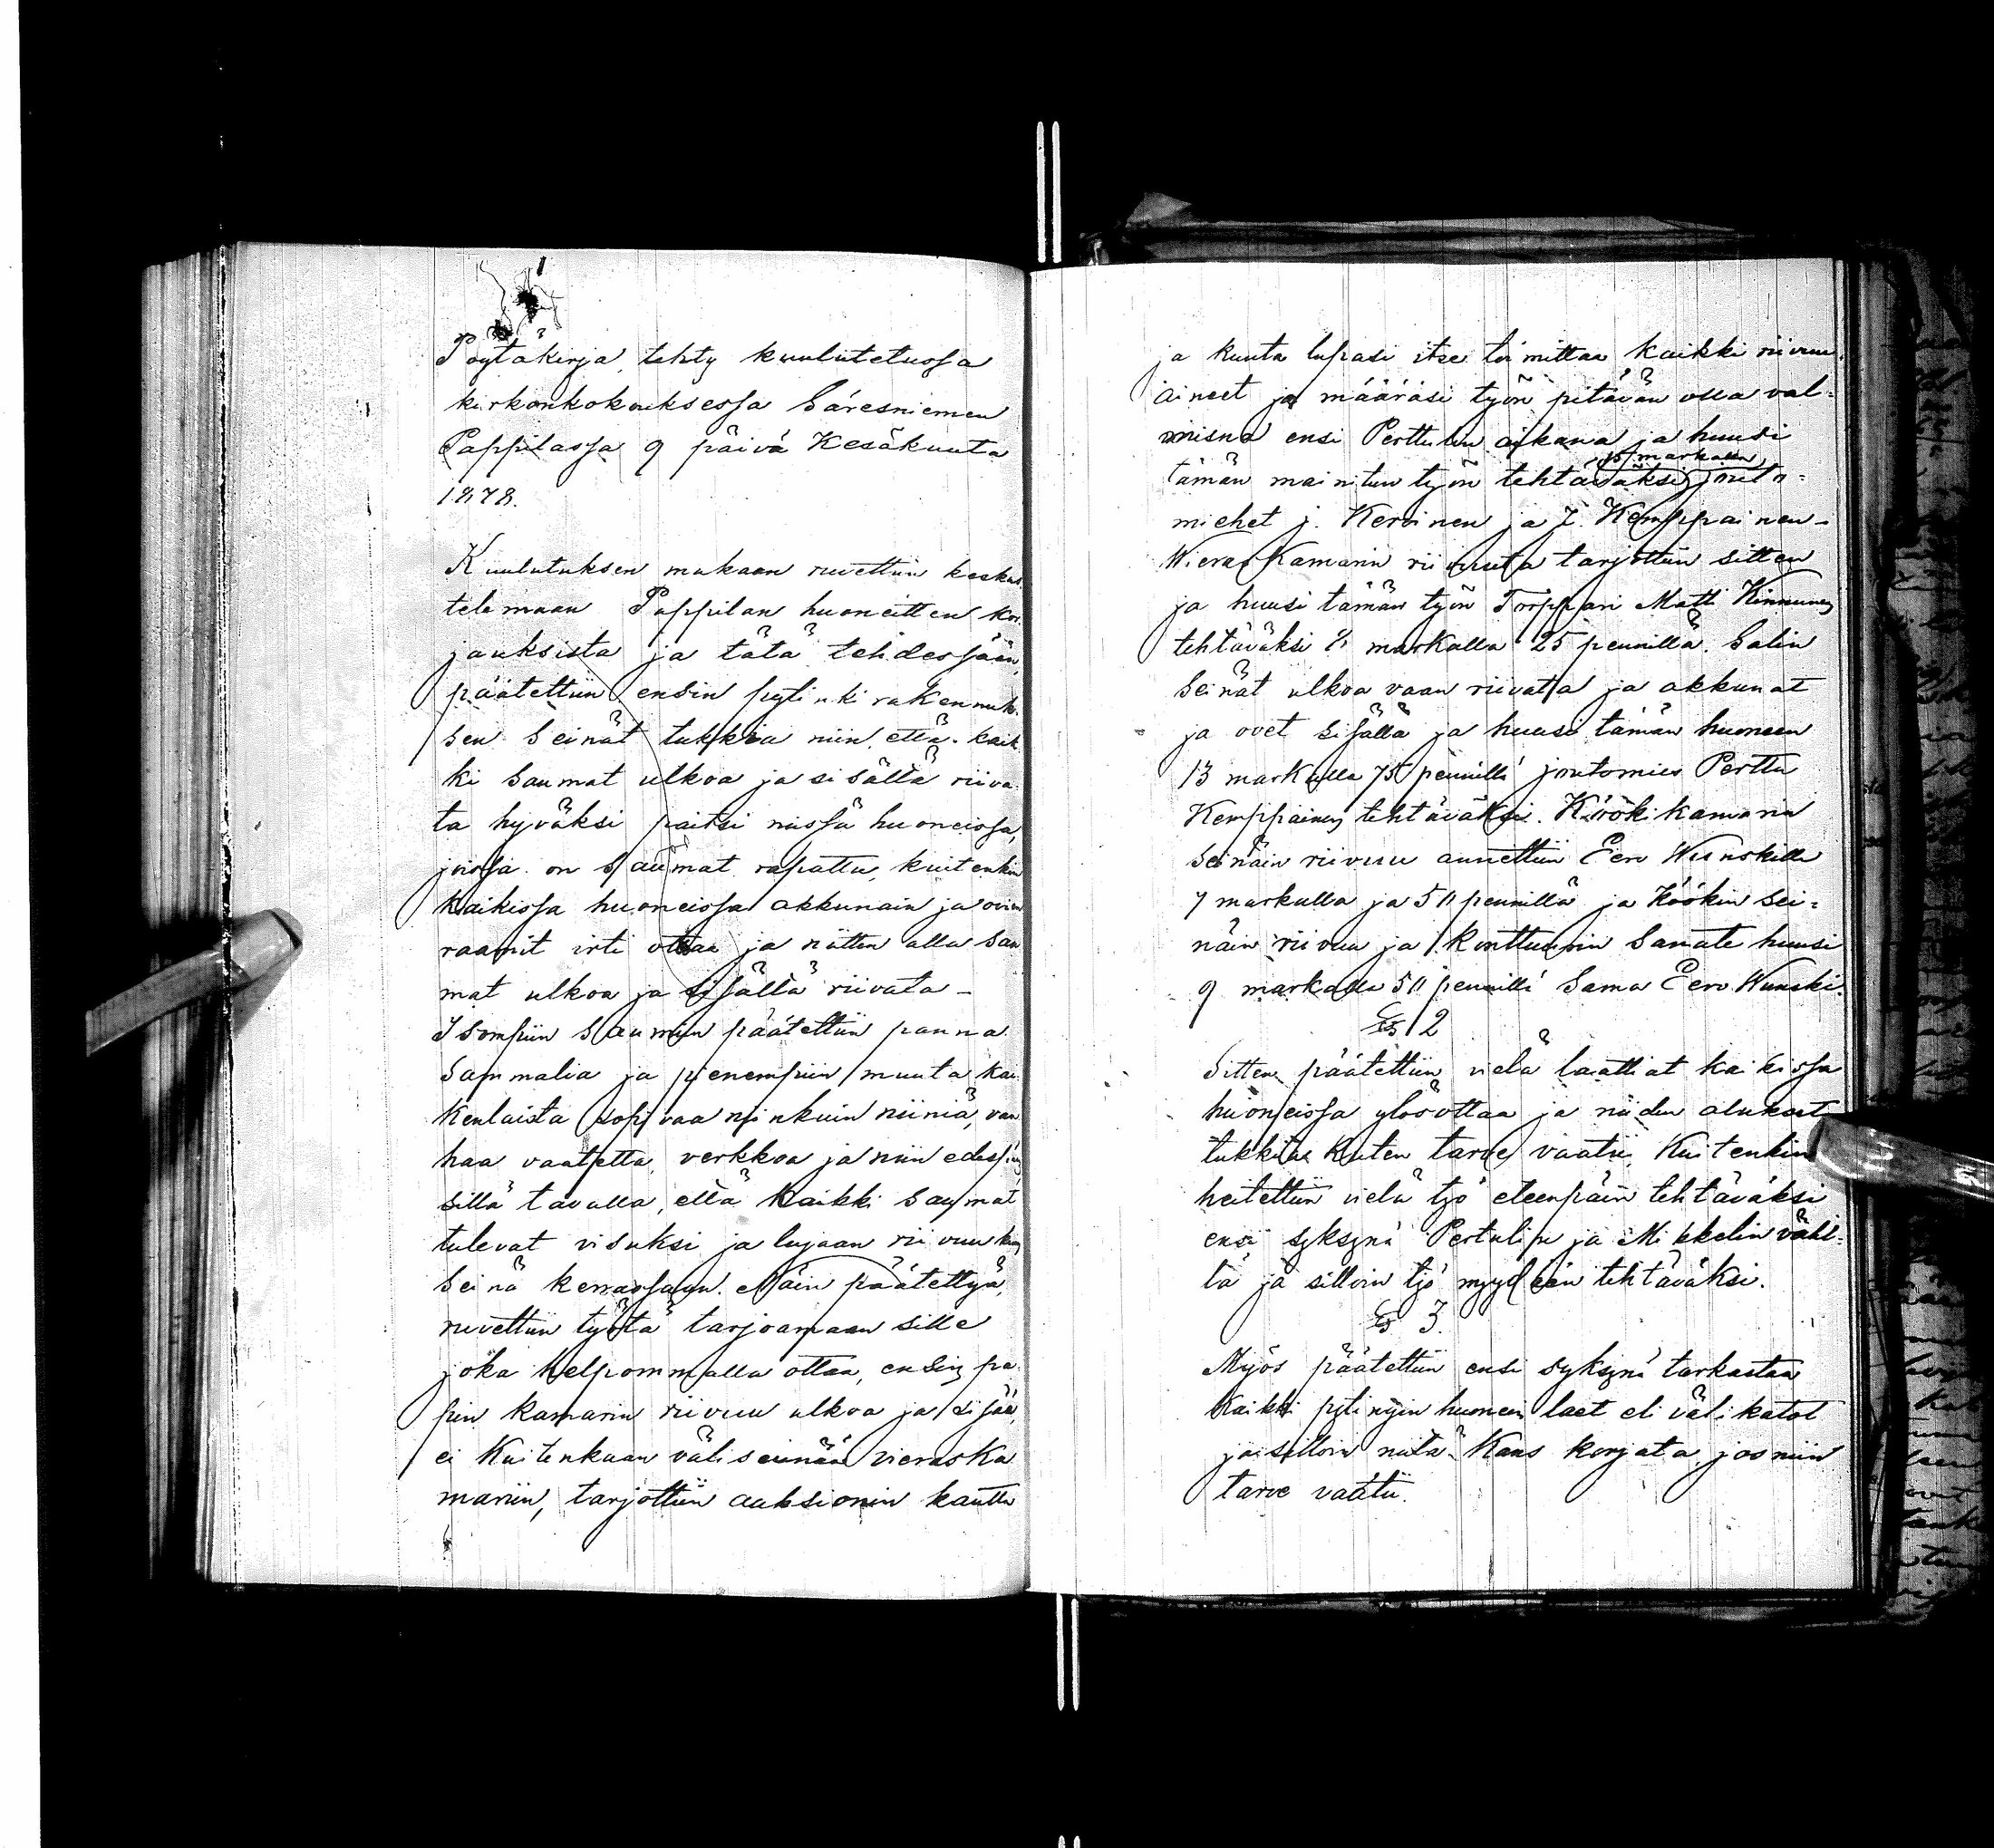 Pöytäkirja, tehty kuulutetussa
kirkonkokouksessa Säresniemen
Pappilassa 9 päivä Kesäkuuta
1878.
Kuulutuksen mukaan ruvettiin keskus
telemaan Pappilan huoneitten kor
jauksista ja tätä tehdessään,
päätettiin ensin pytinki rakennuk
sen seinät tukkia niin, että kaik
ki saumat ulkoa ja sisältä riiva
ta hyväksi paitsi niissä huoneissa,
joissa on saumat rapattu, kuitenkin
kaikissa huoneissa akkunain ja ovien
raamit irti ottaa ja niitten alla sau
mat ulkoa ja sisältä riivata _
Isompiin saumiin päätettiin panna
Sammalia ja pienempiin muuta kai
kenlaista sopivaa niinkuin niiniä, van
haa vaatetta, verkkoa ja niin edespäin
sillä tavalla, että kaikki saumat
tulevat visuksi ja lujaan riivuu kuin
seinä kerrassaan. Näin päätettyä,
ruvettiin työtä tarjoamaan sille
joka helpommalla ottaa, ensin pa
pin kamarin riivuu ulkoa ja sisää,
ei kuitenkaan väliseinää vieraska
mariin, tarjottiin auksionin kautta
ja kunta lupasi itse toimittaa kaikki riivuu
aineet ja määräsi työn pitävän olla val=
miina ensi Perttulin aikana ja huusi
markalla
tämän mainitun työn tehtäväksi jouto=
miehet j. Kervinen ja J. Kemppainen _
Wieras Kamarin riivuuta tarjottiin sitten
ja huusi tämän työn Torppari Matti Kinnunen
tehtäväksi markalla 25 pennillä. Salin
seinät ulkoa vaan riivata ja akkunat
ja ovet sisällä ja huusi tämän huoneen
13 markalla 75 pennillä joutomies Perttu
Kemppainen tehtäväksi. Köökikamarin
seinäin riivuu annettiin Eero Wunskille
7 markalla ja 50 pennillä ja Köökin sei=
näin riivuu ja konttuurin samate huusi
9 markalla 50 pennillä sama Eero Wunski.
§ 2
Sitten päätettiin vielä laattiat kaikissa
huoneissa ylösottaa ja niiden alukset
tukkita kuten tarve vaatii. Kuitenkin
heitettiin vielä työ eteenpäin tehtäväksi
ensi syksynä Pertulin ja Mikkelin väli=
lä ja silloin työ myydään tehtäväksi.
§ 3.
Myös päätettiin ensi syksynä tarkastaa
kaikki pytingin huoneen laet eli välikatot
ja silloin niitä kans korjata, jos niin
tarve vaatii.